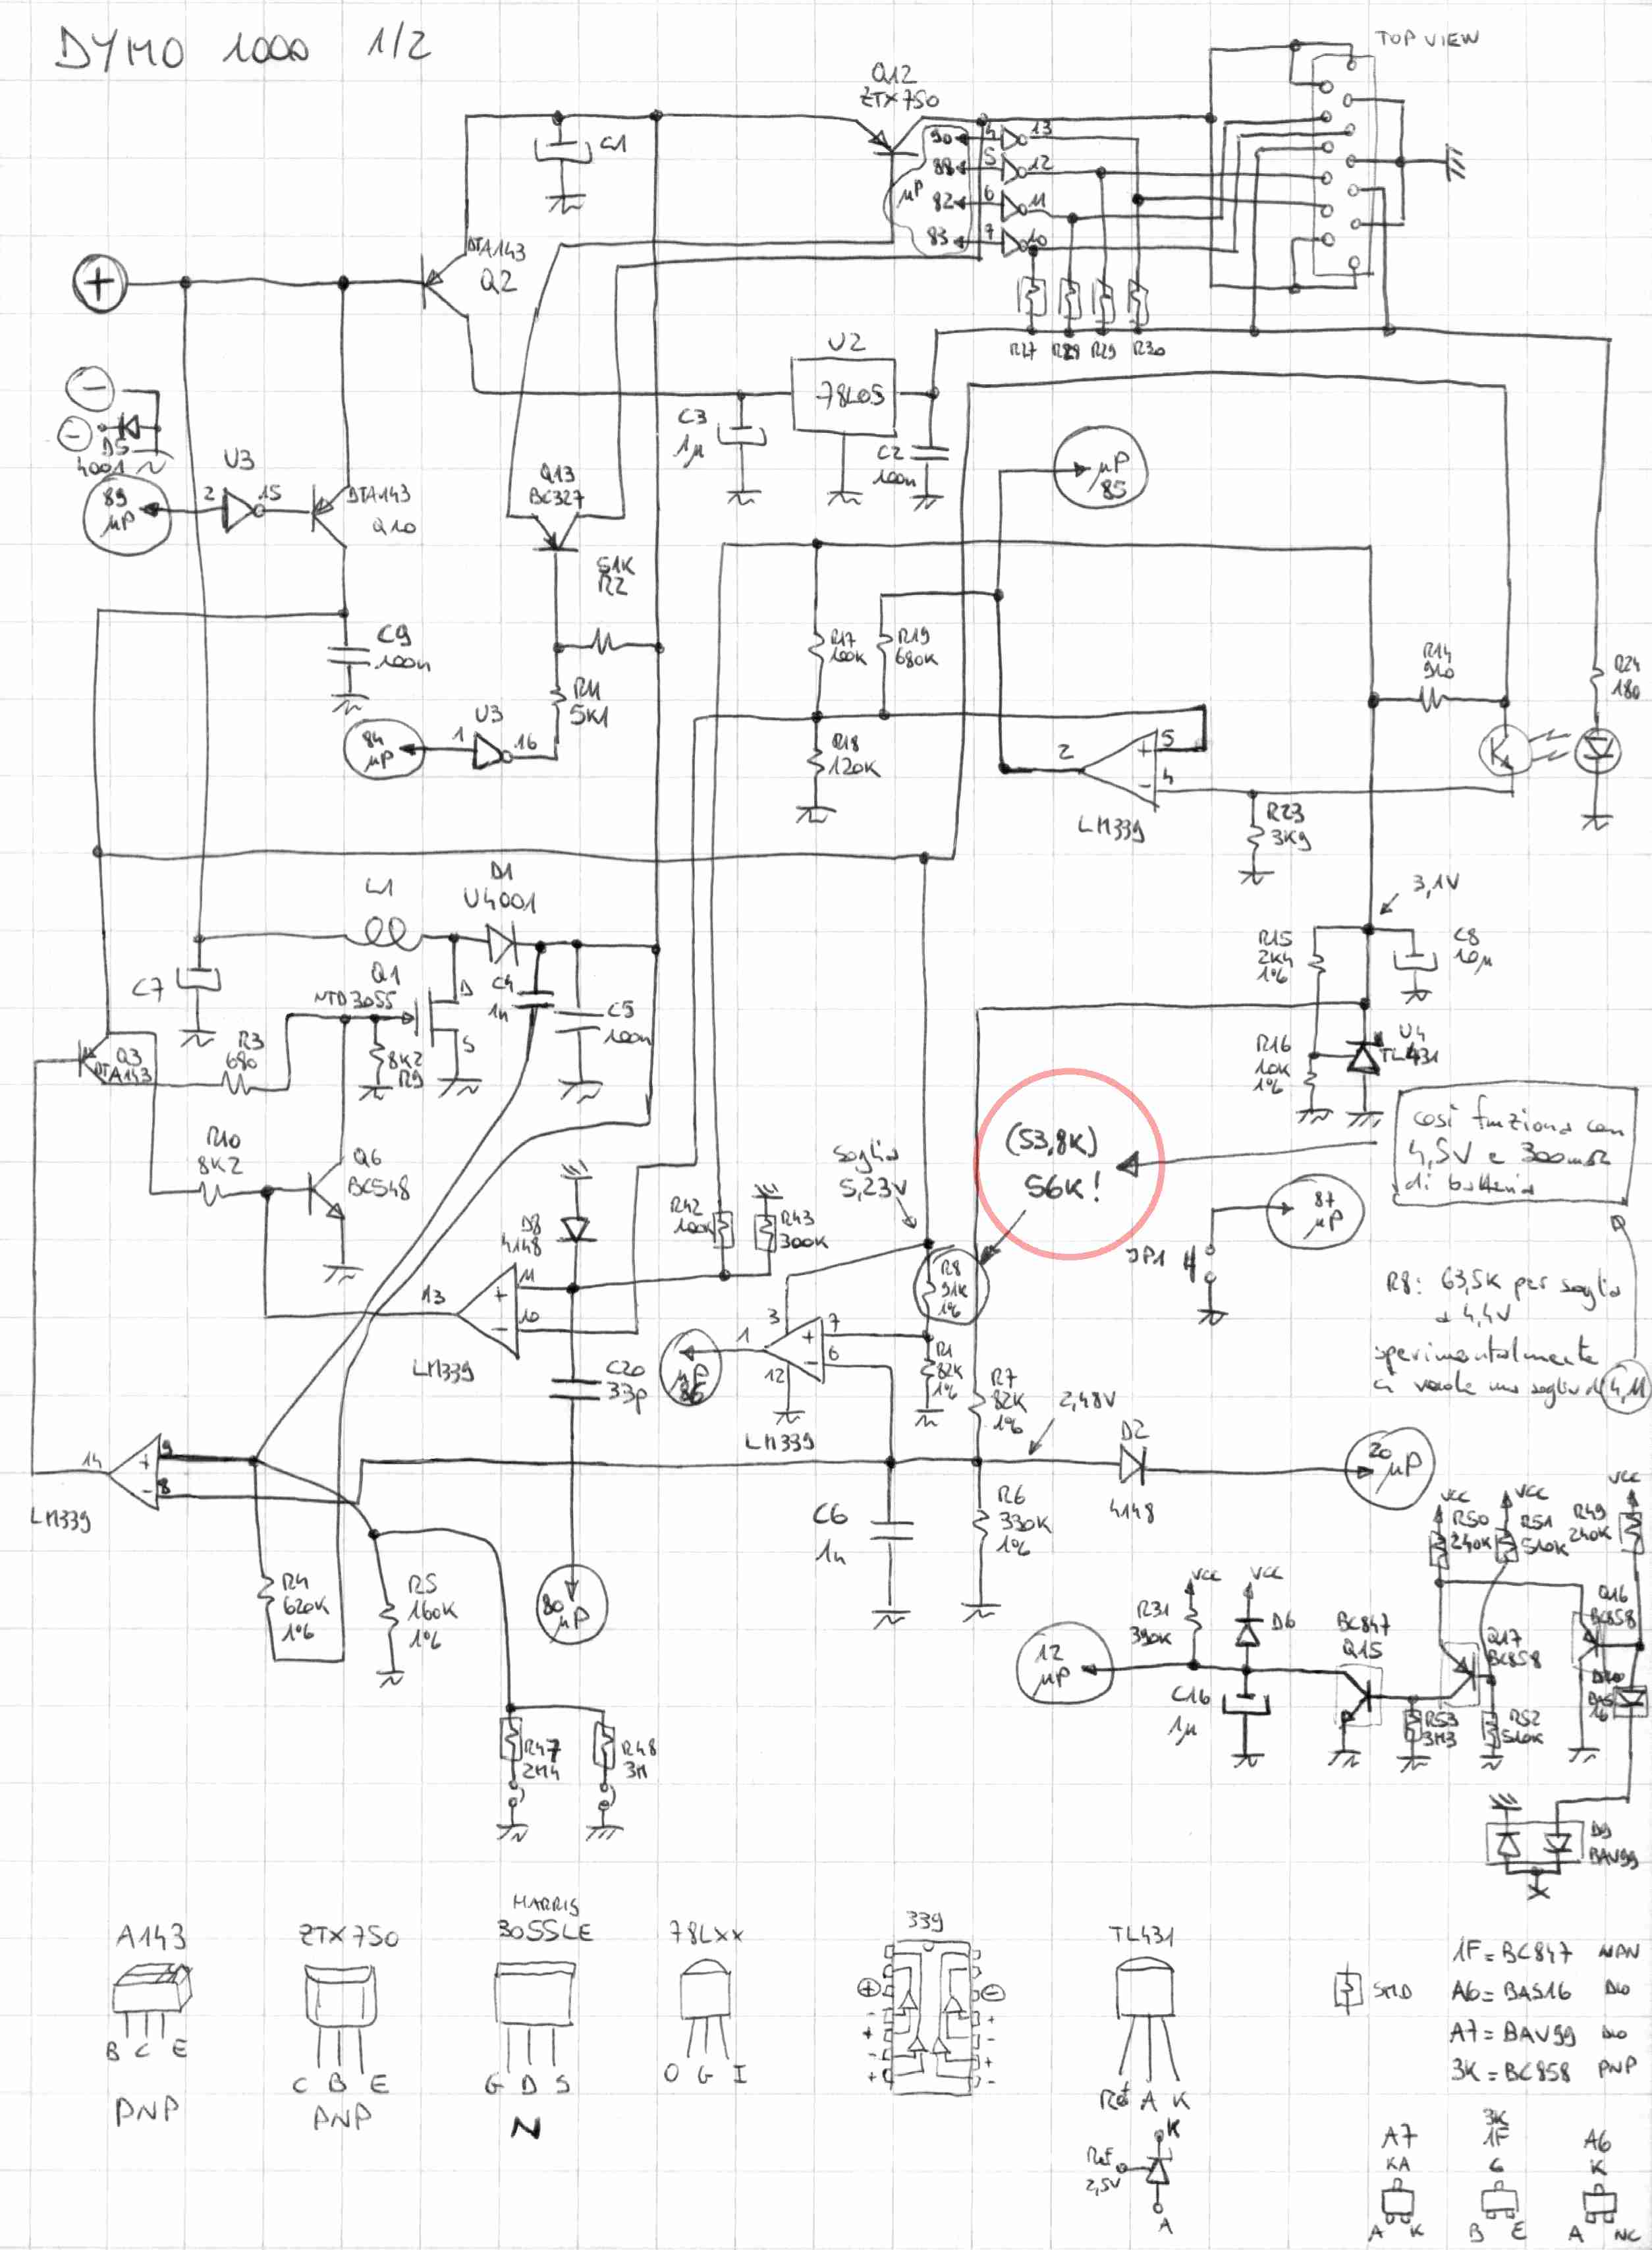 DYMO 1000 1/2
TOP VIEW
Q12
ZTX750
C1
90
88
82
83
µP
4
5
6
7
13
12
11
10
DTA143
Q2
+
R27
R29
R30
U2
78L05
C3
1µ
C2
100n
−
−
D5
4001
U3
89
µP
2
15
DTA143
Q10
Q13
BC327
µP
85
51K
R2
C9
100n
R17
100K
R19
680K
R14
910
R24
180
R11
5K1
84
µP
1
U3
16
R18
120K
2
+
5
−
4
LM339
R23
3K9
L1
D1
U4001
3,1V
R15
2K4
1%
C8
10µ
C7
Q1
NTD3055
D
S
C4
1n
C5
100n
R3
680
8K2
R9
Q3
DTA143
R16
10K
1%
U4
TL431
così funziona con
4,5V e 300mΩ
di batteria
(53,8K)
56K!
soglia
5,23V
R10
8K2
Q6
BC548
D8
4148
R42
100K
R43
300K
87
µP
JP1
R8
91K
1%
R8: 63,5K per soglia
a 4,4V
sperimentalmente
4,11
13
+
11
−
10
LM339
1
3
+
7
−
6
12
µP
86
LM339
R1
82K
1%
R7
82K
1%
2,48V
C20
33p
D2
4148
20
µP
14
+
9
−
8
LM339
C6
1n
R6
330K
1%
VCC
R50
240K
VCC
R51
510K
R49
240K
VCC
R4
620K
1%
R5
160K
1%
80
µP
VCC
R31
390K
VCC
D6
12
µP
C16
1µ
BC847
Q15
Q17
BC858
Q16
BC858
R53
3M3
R52
510K
D10
BAS
16
R47
2M4
R48
3M
D9
BAV99
A143
B C E
PNP
ZTX750
C B E
PNP
HARRIS
3055LE
G D S
N
78LXX
O G I
339
+
−
TL431
Ref A K
K
Ref
2,5V
A
SMD
1F = BC847 NPN
A6 = BAS16 DIO
A7 = BAV99 DIO
3K = BC858 PNP
A7
KA
A K
3K
1F
C
B E
A6
K
A NC